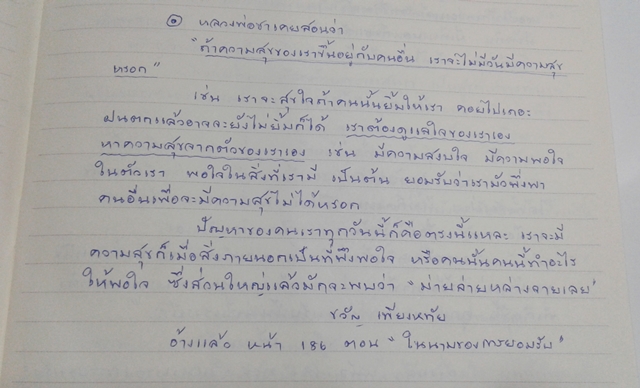 ๏ หลวงพ่อชาเคยสอนว่า
"ถ้าความสุขของเราขึ้นอยู่กับคนอื่น เราจะไม่มีวันมีความสุข
หรอก"
เช่น เราจะสุขใจถ้าคนนั้นยิ้มให้เรา คอยไปเถอะ
ฝนตกแล้วอาจจะยังไม่ยิ้มก็ได้ เราต้องดูแลใจของเราเอง
หาความสุขจากตัวของเราเอง เช่น มีความสงบใจ มีความพอใจ
ในตัวเรา พอใจในสิ่งที่เรามี เป็นต้น ยอมรับว่าเรามัวพึ่งพา
คนอื่นเพื่อจะมีความสุขไม่ได้หรอก
ปัญหาของคนเราทุกวันนี้ก็คือตรงนี้แหละ เราจะมี
ความสุขก็เมื่อสิ่งภายนอกเป็นที่พึงพอใจ หรือคนนั้นคนนี้ทำอะไร
ให้พอใจ ซึ่งส่วนใหญ่แล้วมักจะพบว่า "ม่ายล่ายหล่างจายเลย"
ขวัญ เพียงหทัย
อ้างแล้ว หน้า 186 ตอน "ในนามของการยอมรับ"